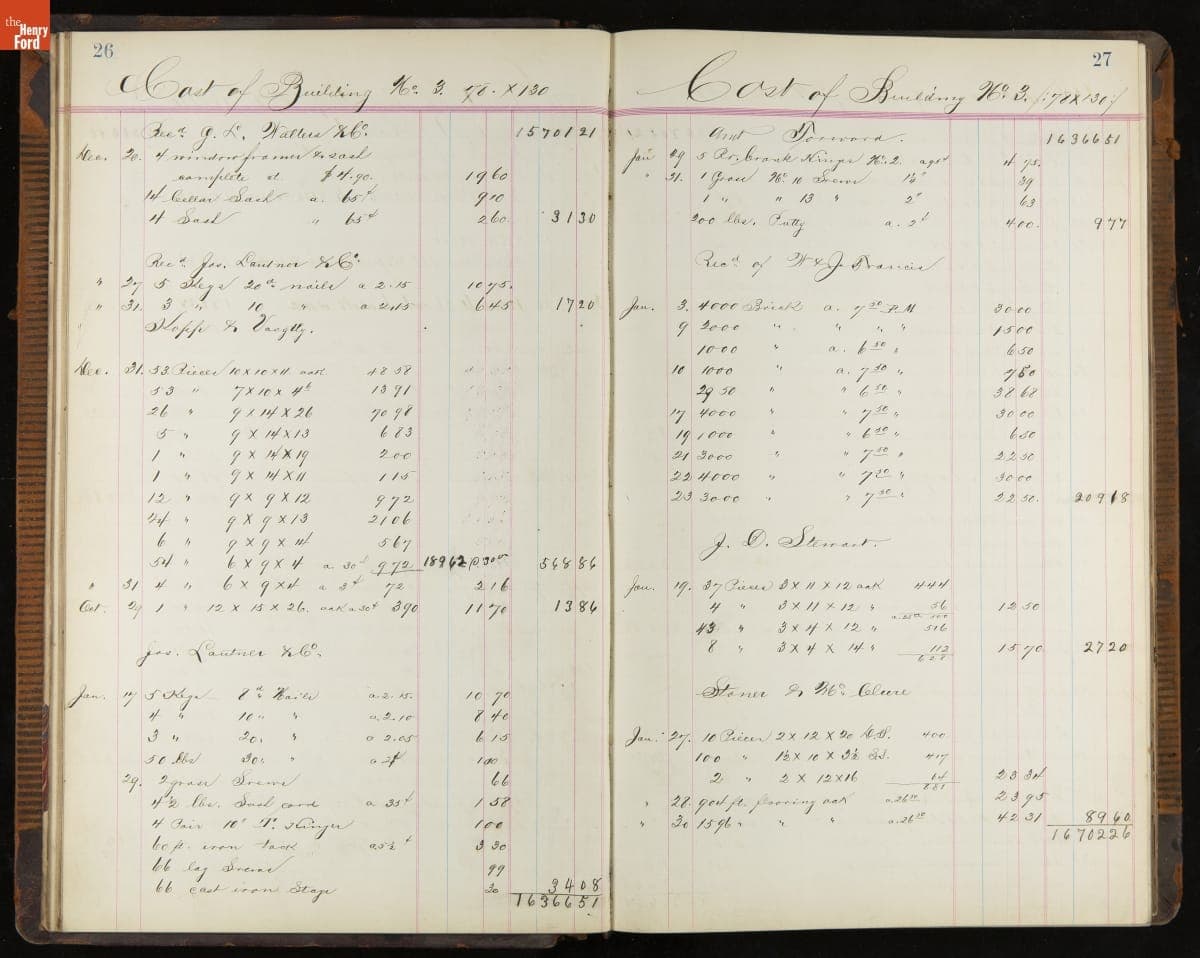 the Henry Ford
26
Cost of Building No. 3. 78 X 130
Rec'd G. L. Walters & Co. 15701 21
Dec. 20. 4 window frames & sash
complete at $4.90. 19 60
14 Cellar Sash a. 65¢ 9 10
4 Sash " 65¢ 2 60 31 30
Rec'd Jos. Lautner & Co.
" 27 5 Kegs 20d nails a 2.15 10 75.
" 31. 3 " 10 " a 2.15 6 45 17 20
Kopp & Voegtly.
Dec. 31. 53 Pieces 10 x 10 x 11 oak 48 58
53 " 7 x 10 x 4½ 13 91
26 " 9 x 14 x 26 70 98
5 " 9 x 14 x 13 6 83
1 " 9 x 14 x 19 2 00
1 " 9 x 14 x 11 1 15
12 " 9 x 9 x 12 9 72
24 " 9 x 9 x 13 21 06
6 " 9 x 9 x 14 5 67
54 " 6 x 9 x 4 a 30¢ 9 72 18962 @ 30 568 86
" 31 4 " 6 x 9 x 4 a 3¢ 72 2 16
Oct. 29 1 " 12 x 15 x 26. oak a 30¢ 390 11 70 13 86
Jos. Lautner & Co.
Jan. 17 5 Kegs 8d Nails a 2.15. 10 70
4 " 10 " " a 2.10 8 40
3 " 20 " " a 2.05 6 15
50 lbs 30 " " a 2¢ 1 00
29. 2 gross Screws 66
4½ lbs. Sash cord a 35¢ 1 58
4 Pair 10" T. Hinges 1 00
60 ft. iron a 5½¢ 3 30
66 lag Screws 99
66 cast iron 30 34 08
16366 51
27
Cost of Building No. 3. (:78 x 130:)
Amt Forward. 16366 51
Jan 29 5 Pr. Crank Hinges No. 2. a 95¢ 4 75.
" 31. 1 Gross No. 10 Screws 1½" 39
1 " " 13 " 2" 63
200 lbs. Putty a. 2¢ 4 00. 9 77
Rec'd of W & J. Francis
Jan. 3. 4000 Brick a. 7 50 P. M 30 00
9 2000 " " " " 15 00
1000 " a. 6 50 " 6 50
10 1000 " a. 7 50 " 7 50
29 50 " " 6 50 " 38 68
17 4000 " " 7 50 " 30 00
19 1000 " " 6 50 " 6 50
21 3000 " " 7 50 " 22 50
22 4000 " " 7 50 " 30 00
23 3000 " " 7 50 " 22 50. 209 18
J. D. Stewart.
Jan. 19. 37 Pieces 3 x 11 x 12 oak 444
4 " 3 x 11 x 12 " 56 12 50
43 " 3 x 4 x 12 " 516
8 " 3 x 4 x 14 " 112 15 70 27 20
628
Stoner & McClure
Jan. 27. 10 Pieces 2 x 12 x 20 400
100 " 1½ x 10 x 3½ 417
2 " 2 x 12 x 16 64 23 34
881
" 28. 904 ft. flooring oak a. 26 50 23 95
" 30 1596 " " " a. 26 50 42 31 89 60
16702 26